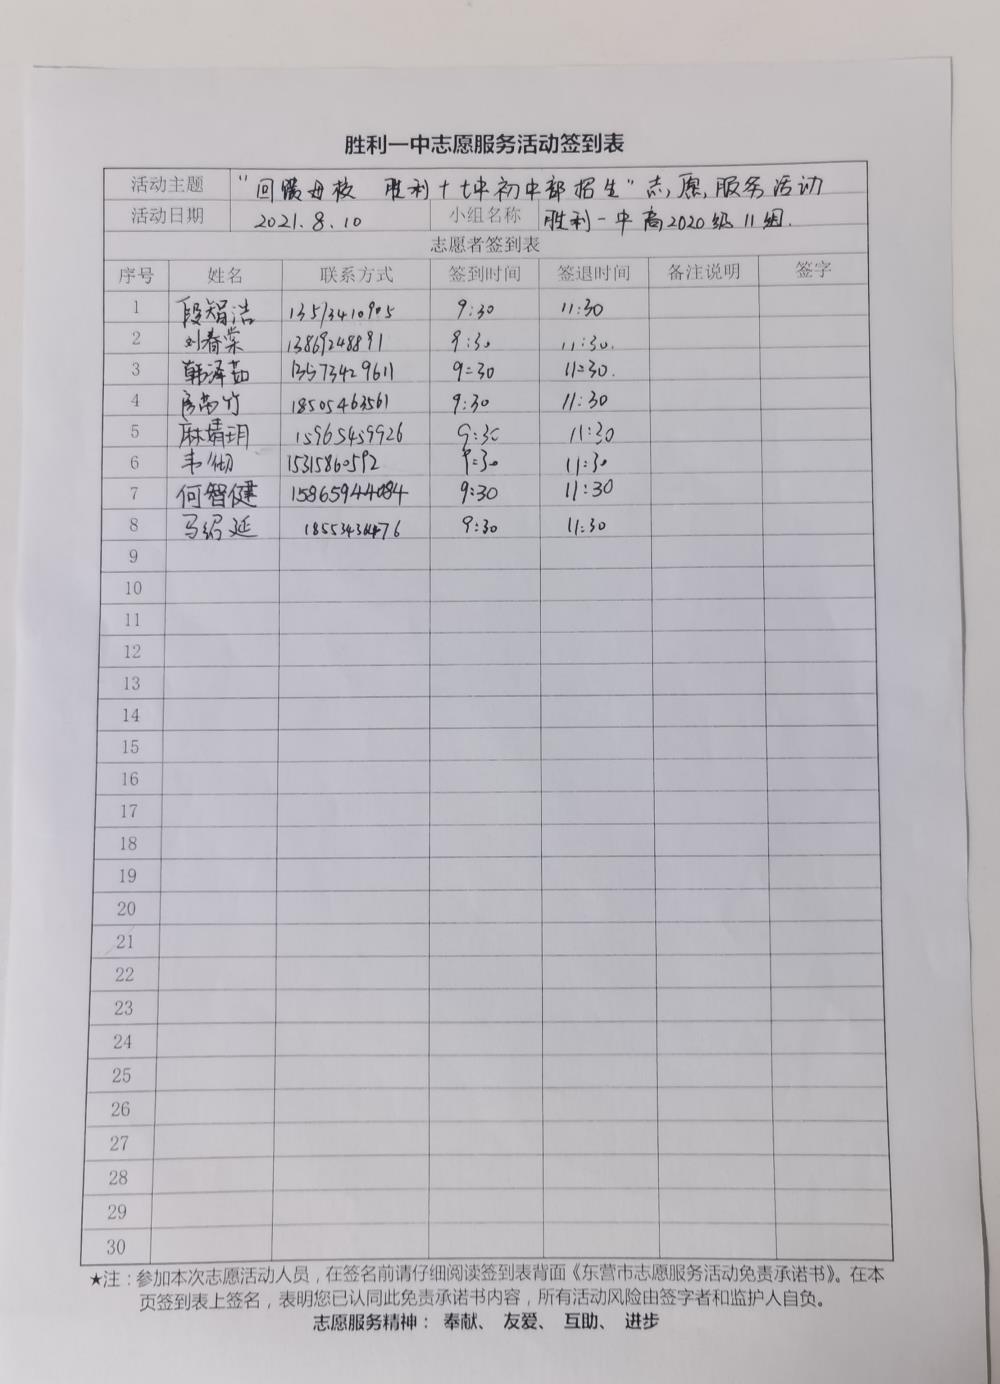 胜利一中志愿服务活动签到表
活动主题 "回馈母校 胜利十七中初中部招生"志愿服务活动
活动日期 2021.8.10 小组名称 胜利一中高2020级11组.
志愿者签到表
序号 姓名 联系方式 签到时间 签退时间 备注说明 签字
1 段智洁 9:30 11:30
2 刘春棠 13869248891 9:30 11:30.
3 韩泽茹 13573429611 9:30 11:30.
4 18505463561 9:30 11:30
5 麻婧玥 15965459926 9:30 11:30
6 韦 15315860592 9:30 11:30
7 何智健 15865944084 9:30 11:30
8 马绍延 9:30 11:30
9
10
11
12
13
14
15
16
17
18
19
20
21
22
23
24
25
26
27
28
29
30
★注：参加本次志愿活动人员，在签名前请仔细阅读签到表背面《东营市志愿服务活动免责承诺书》。在本
页签到表上签名，表明您已认同此免责承诺书内容，所有活动风险由签字者和监护人自负。
志愿服务精神： 奉献、 友爱、 互助、 进步